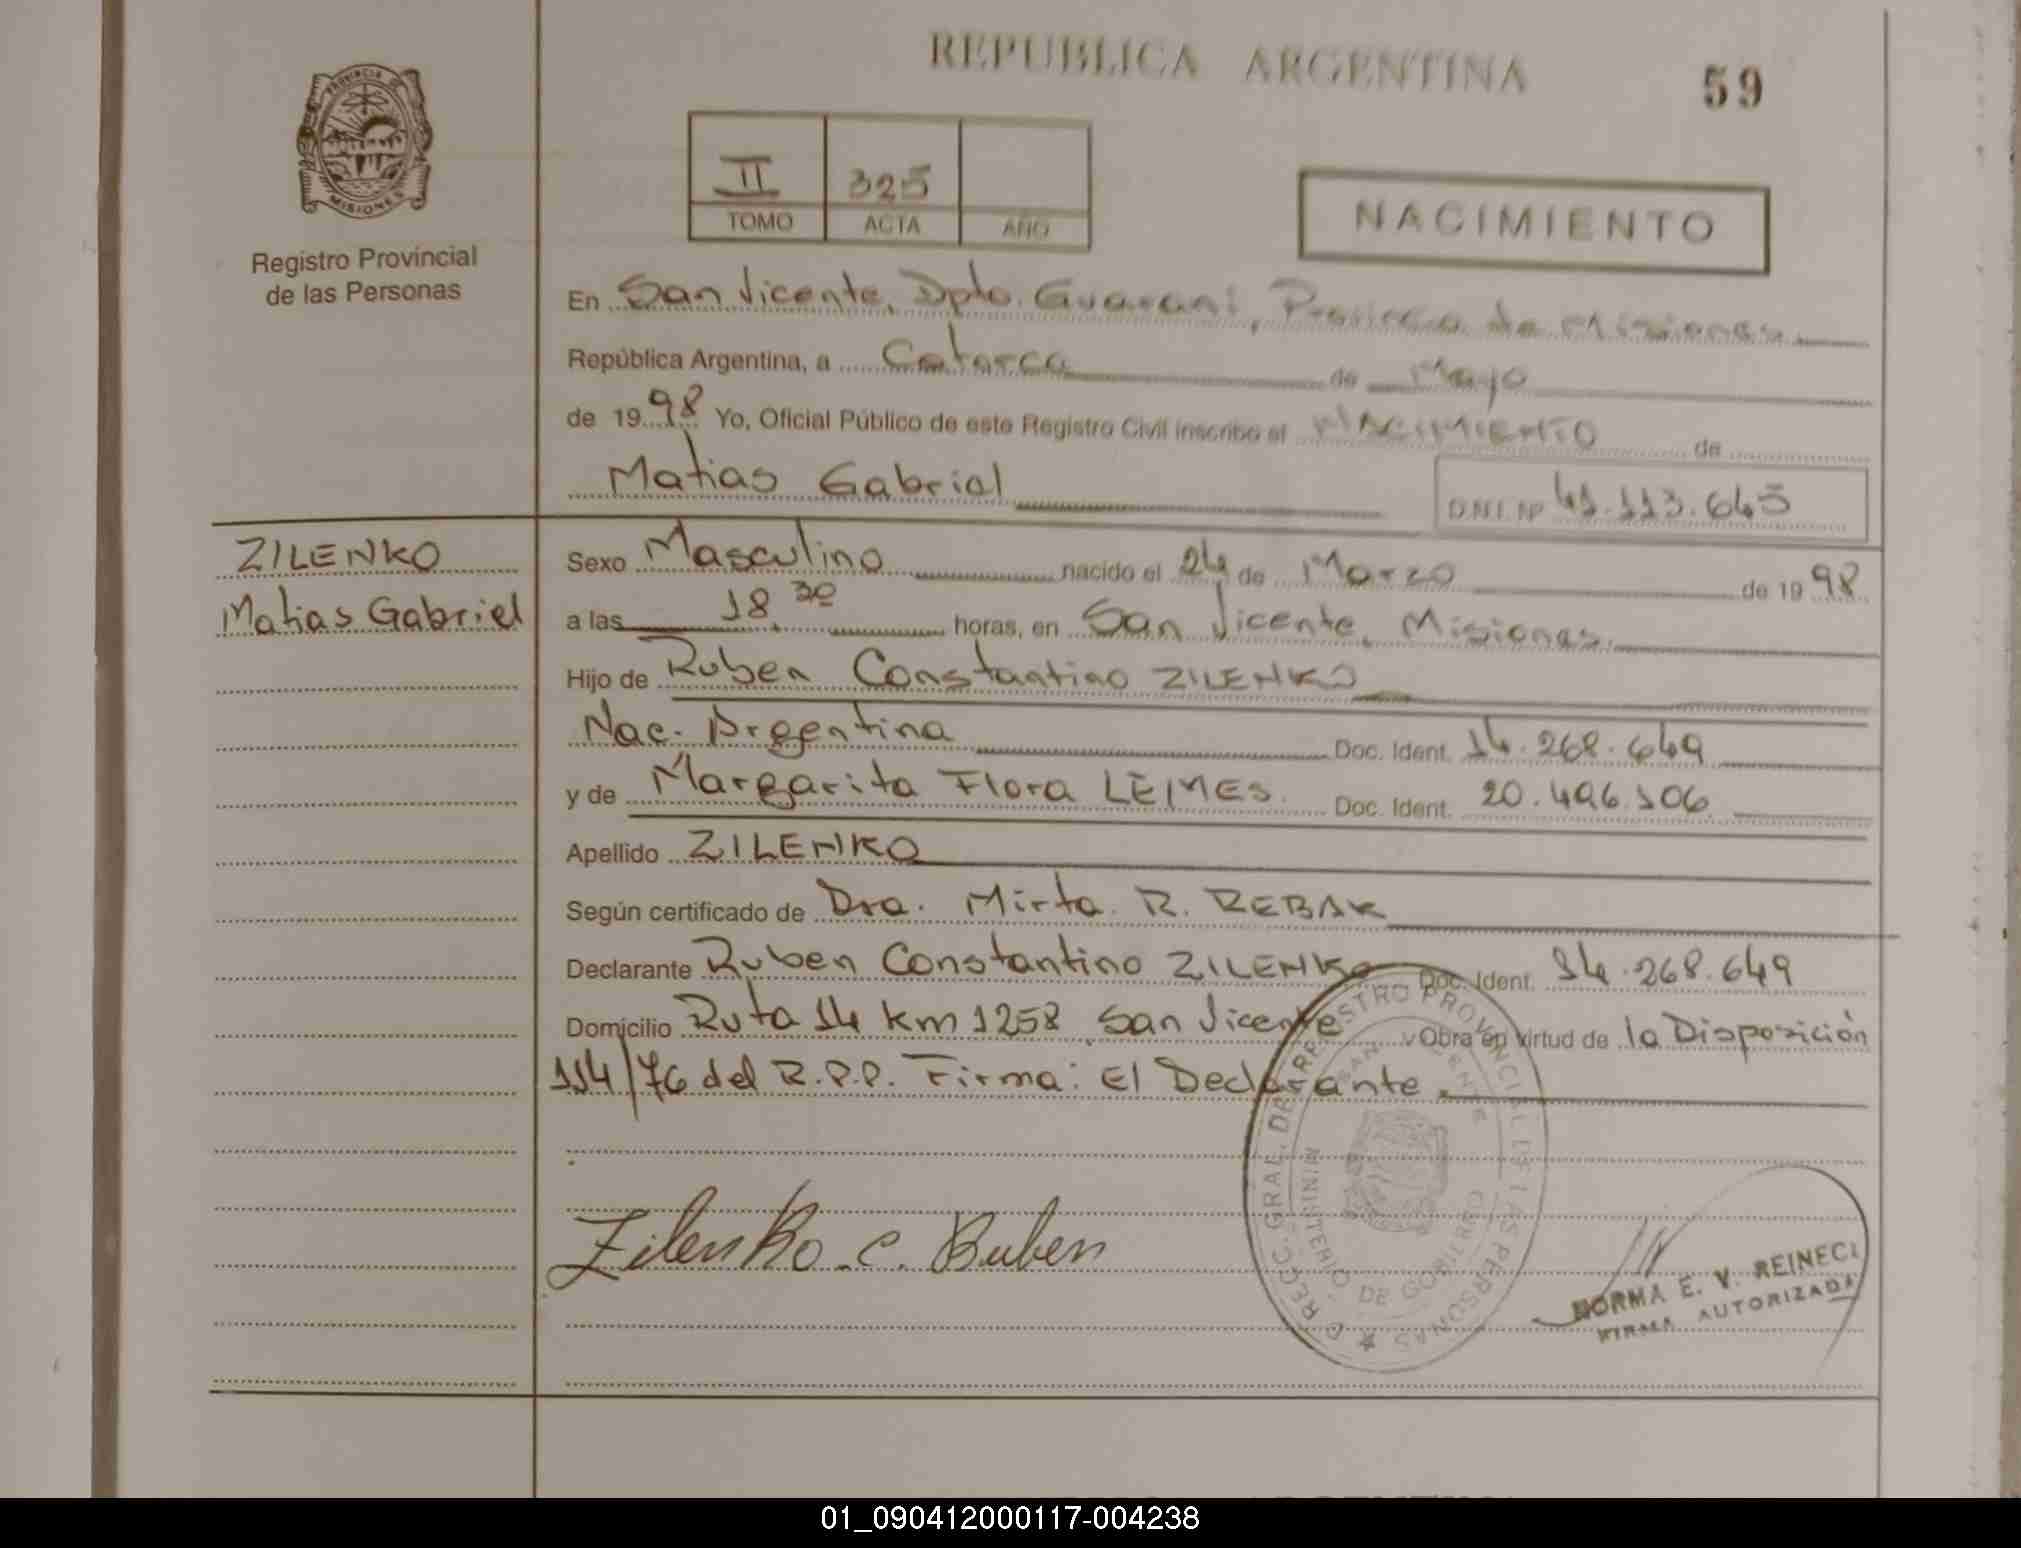 REPUBLICA ARGENTINA
59
PROVINCIA DE MISIONES
Registro Provincial
de las Personas
II 325
TOMO ACTA AÑO
NACIMIENTO
En San Vicente, Dpto. Guarani, Provincia de Misiones
República Argentina, a Catorce de Mayo
de 1998 Yo, Oficial Público de este Registro Civil inscribo el NACIMIENTO de
Matias Gabriel D.N.I. Nº 41.113.645
ZILENKO
Matias Gabriel
Sexo Masculino nacido el 24 de Marzo de 1998
a las 18.30 horas, en San Vicente, Misiones.
Hijo de Ruben Constantino ZILENKO
Nac. Argentina Doc. Ident. 14.268.649
y de Margarita Flora LEMES. Doc. Ident. 20.496.106
Apellido ZILENKO
Según certificado de Dra. Mirta R. REBAK
Declarante Ruben Constantino ZILENKO Doc. Ident. 14.268.649
Domicilio Ruta 14 Km 1258 San Vicente y Obra en virtud de la Disposición
114/76 del R.P.P. Firma: El Declarante.
DIRECC. GRAL. DEL REGISTRO PROVINCIAL DE LAS PERSONAS
SAN VICENTE
MINISTERIO DE GOBIERNO
Zilenko C. Ruben
NORMA E. V. REINECK
FIRMA AUTORIZADA
01_090412000117-004238